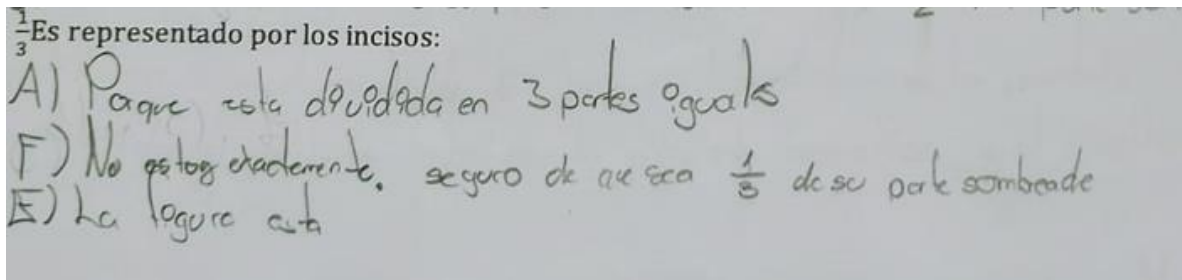 1/3 Es representado por los incisos:
A) Paque esta dividida en 3 partes iguals
F) No estoy exactemente. seguro de que sea 1/3 de su parte sombeade
E) La figure esta